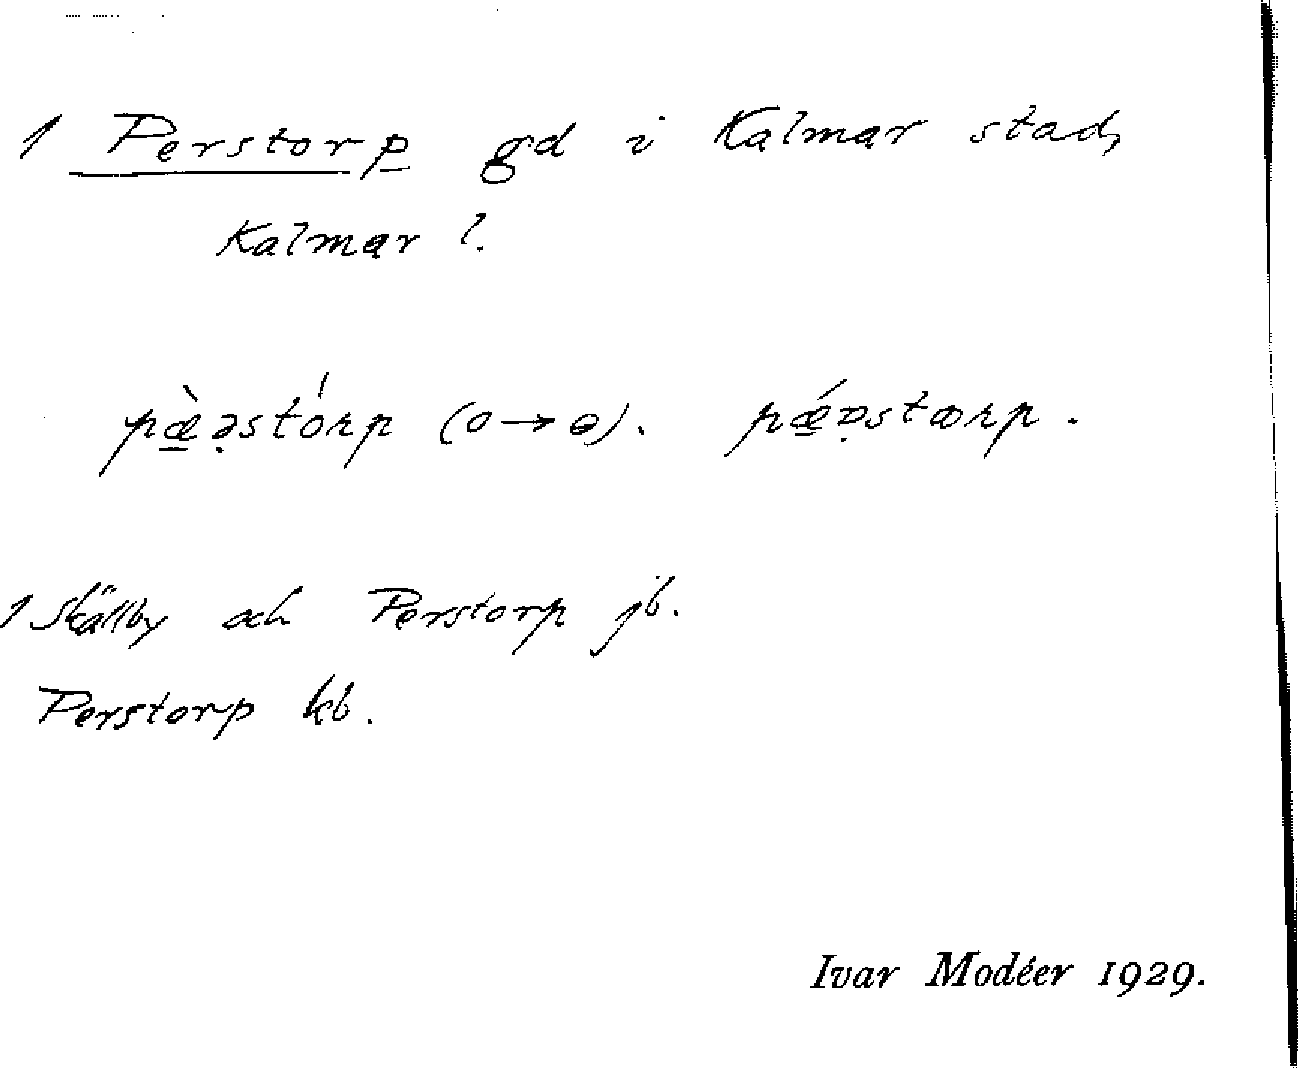 1 Perstorp gd i Kalmar stad,
Kalmar l.
pæ̠̀ə̣stórp (o→ɵ). pǽ̠ɒ̣stœrp.
1 Skällby och Perstorp jb.
Perstorp kb.
Ivar Modéer 1929.